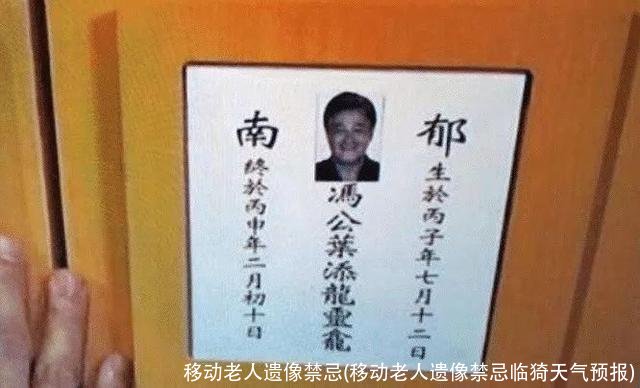 郁
生於丙子年七月十二日
馮公葉添龍靈龕
南
終於丙申年二月初十日
移动老人遗像禁忌(移动老人遗像禁忌临猗天气预报)